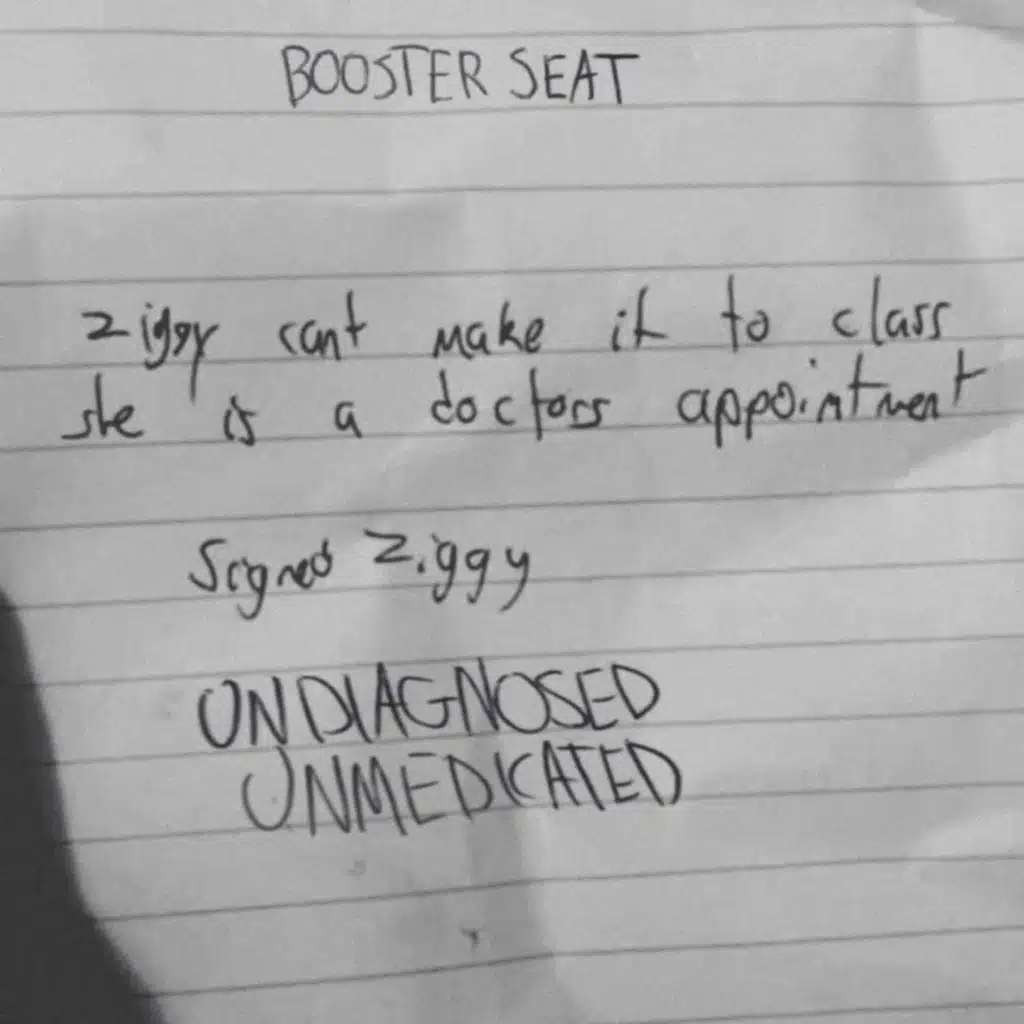 BOOSTER SEAT
Ziggy cant make it to class
she is a doctors appointment
Signed Ziggy
UNDIAGNOSED
UNMEDICATED